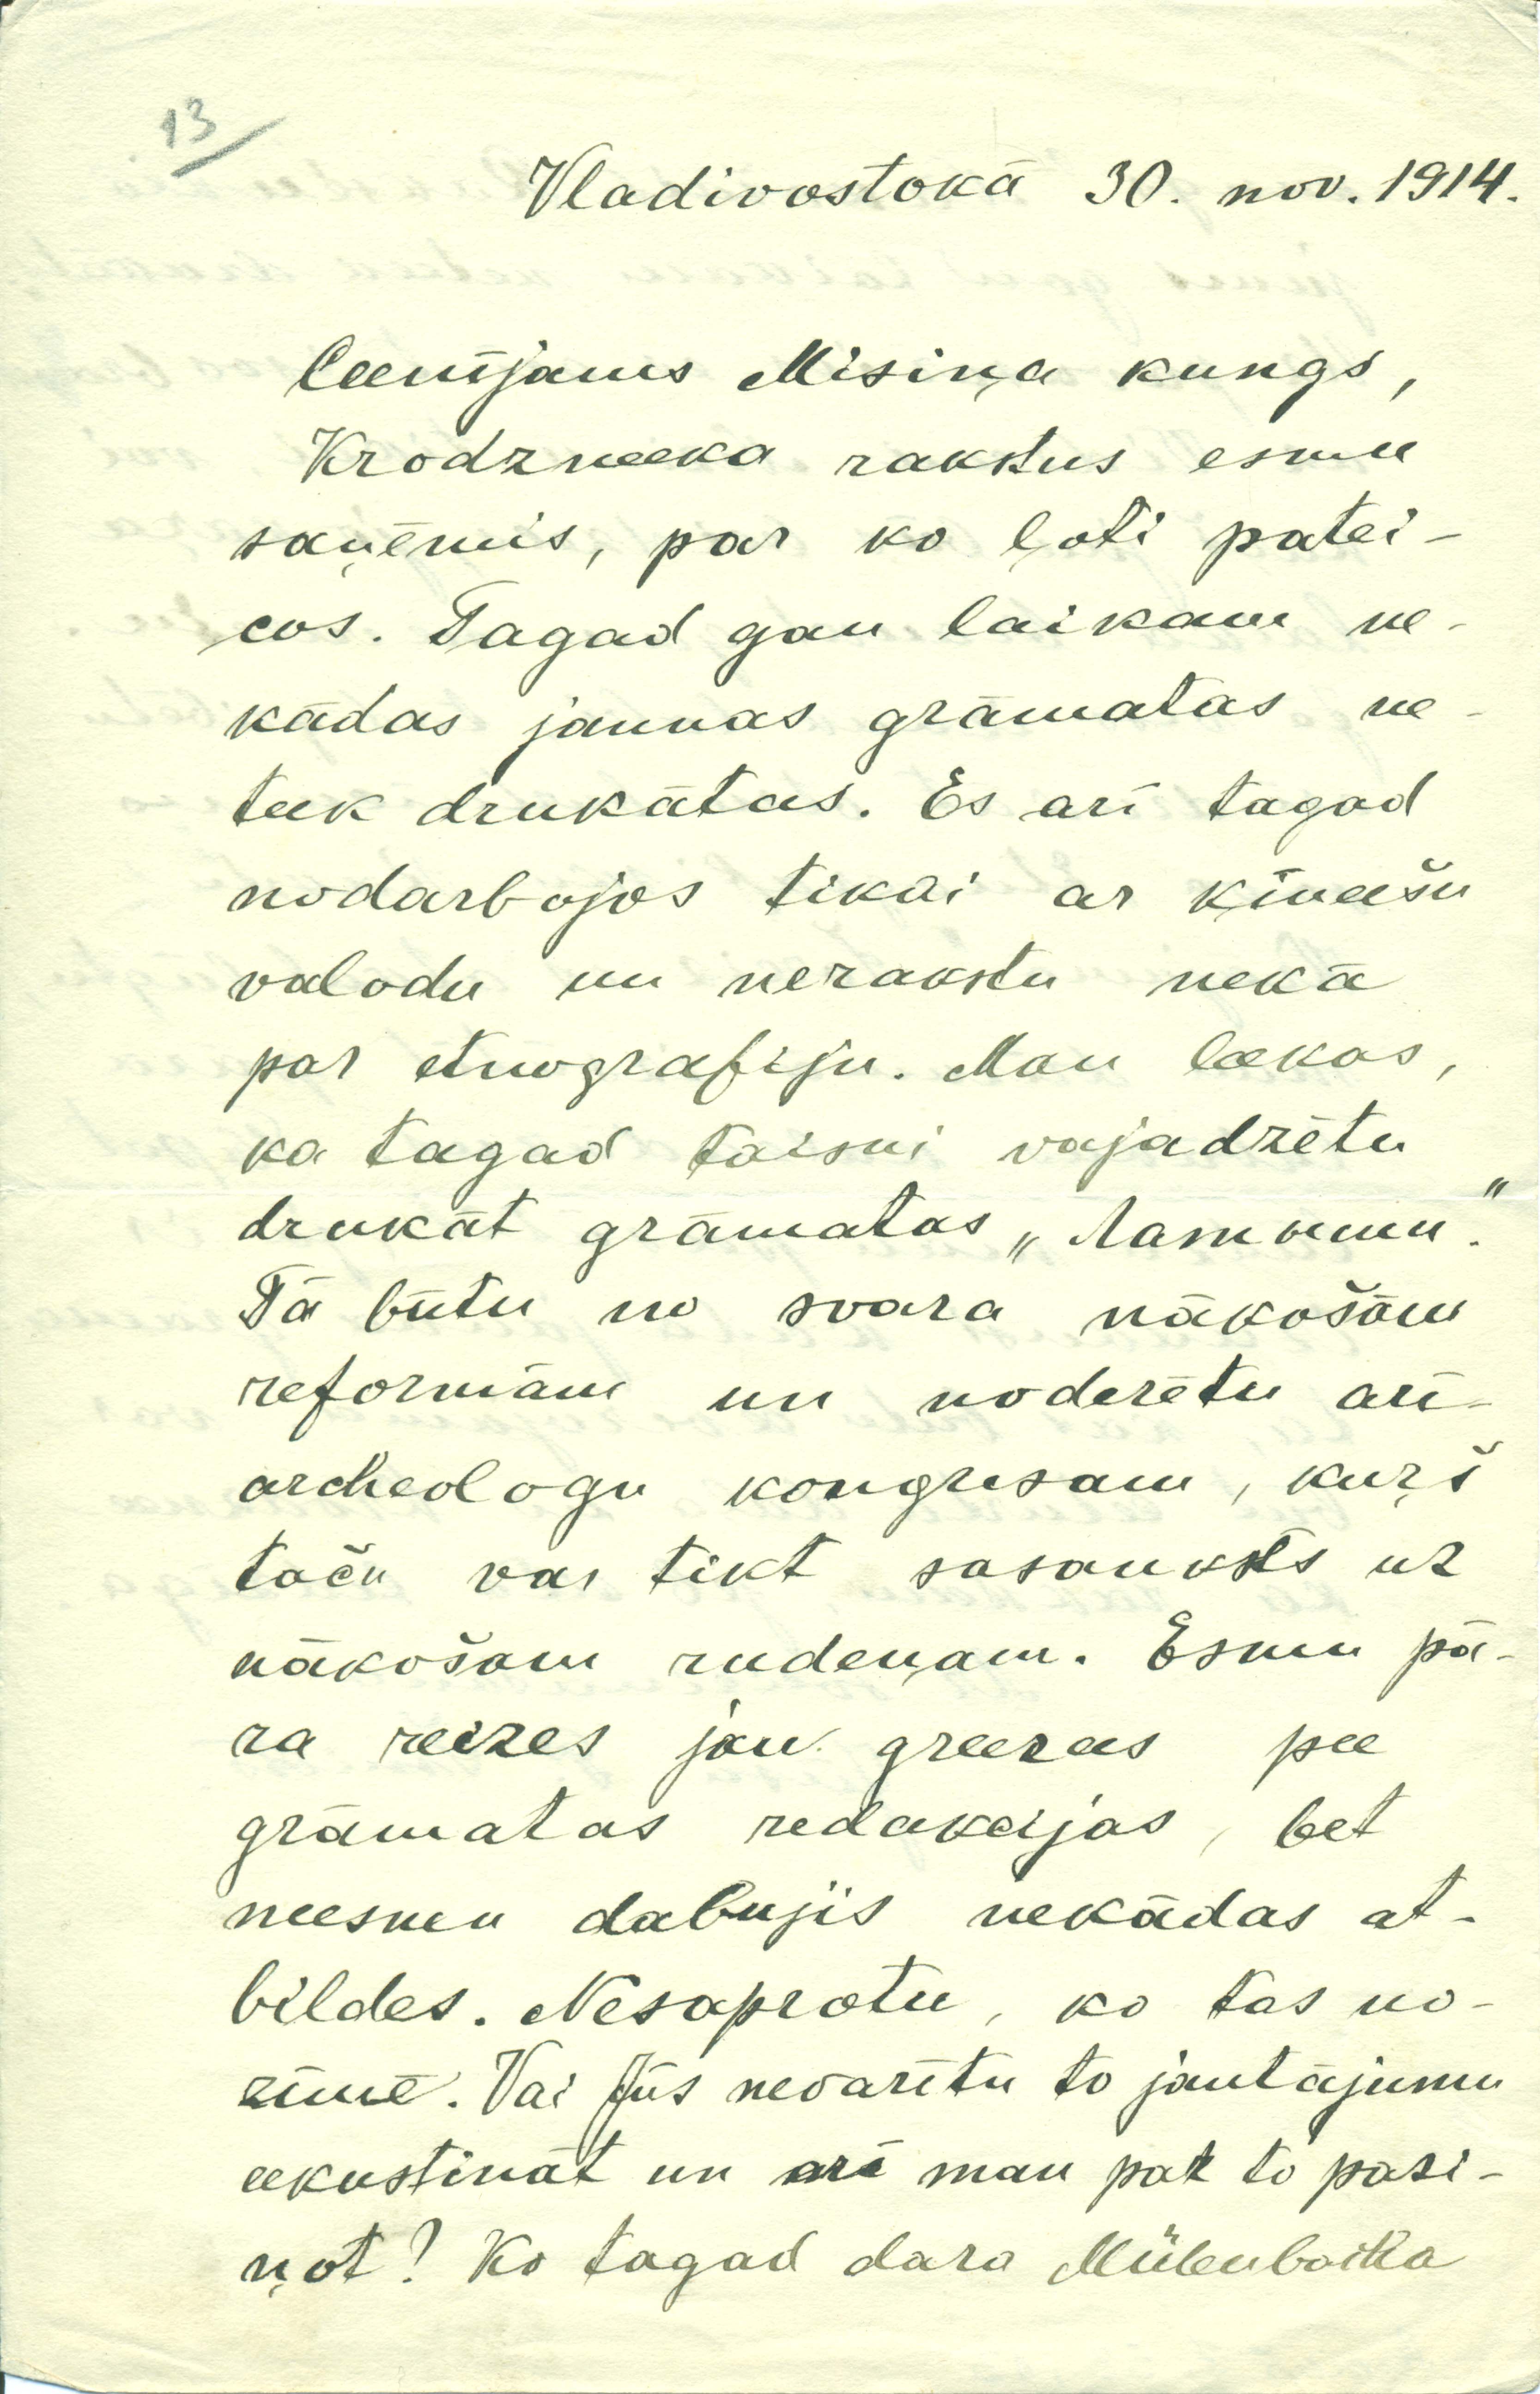 13
Vladivostokā 30. nov. 1914.
Ceenījams Misiņa kungs,
Krodzneeka rakstus esmu
saņēmis, par ko ļoti patei-
cos. Tagad gan laikam ne-
kādas jaunas grāmatas ne-
teek drukātas. Es arī tagad
nodarbojos tikai ar ķīneešu
valodu un nerakstu nekā
par etnografiju. Man leekas,
ka tagad taisni vajadzētu
drukāt grāmatas „Латыши".
Tā būtu no svara nākošām
reformām un noderētu arī
archeologu kongresam, kuŗš
taču var tikt sasaukts uz
nākošam rudeņam. Esmu pā-
ra reizes jau greezees pee
grāmatas redakcijas, bet
neesmu dabujis nekādas at-
bildes. Nesaprotu, ko tas no-
zīmē. Vai Jūs nevarētu to jautājumu
eekustināt un arī man par to pazi-
ņot? Ko tagad dara Mülenbacha